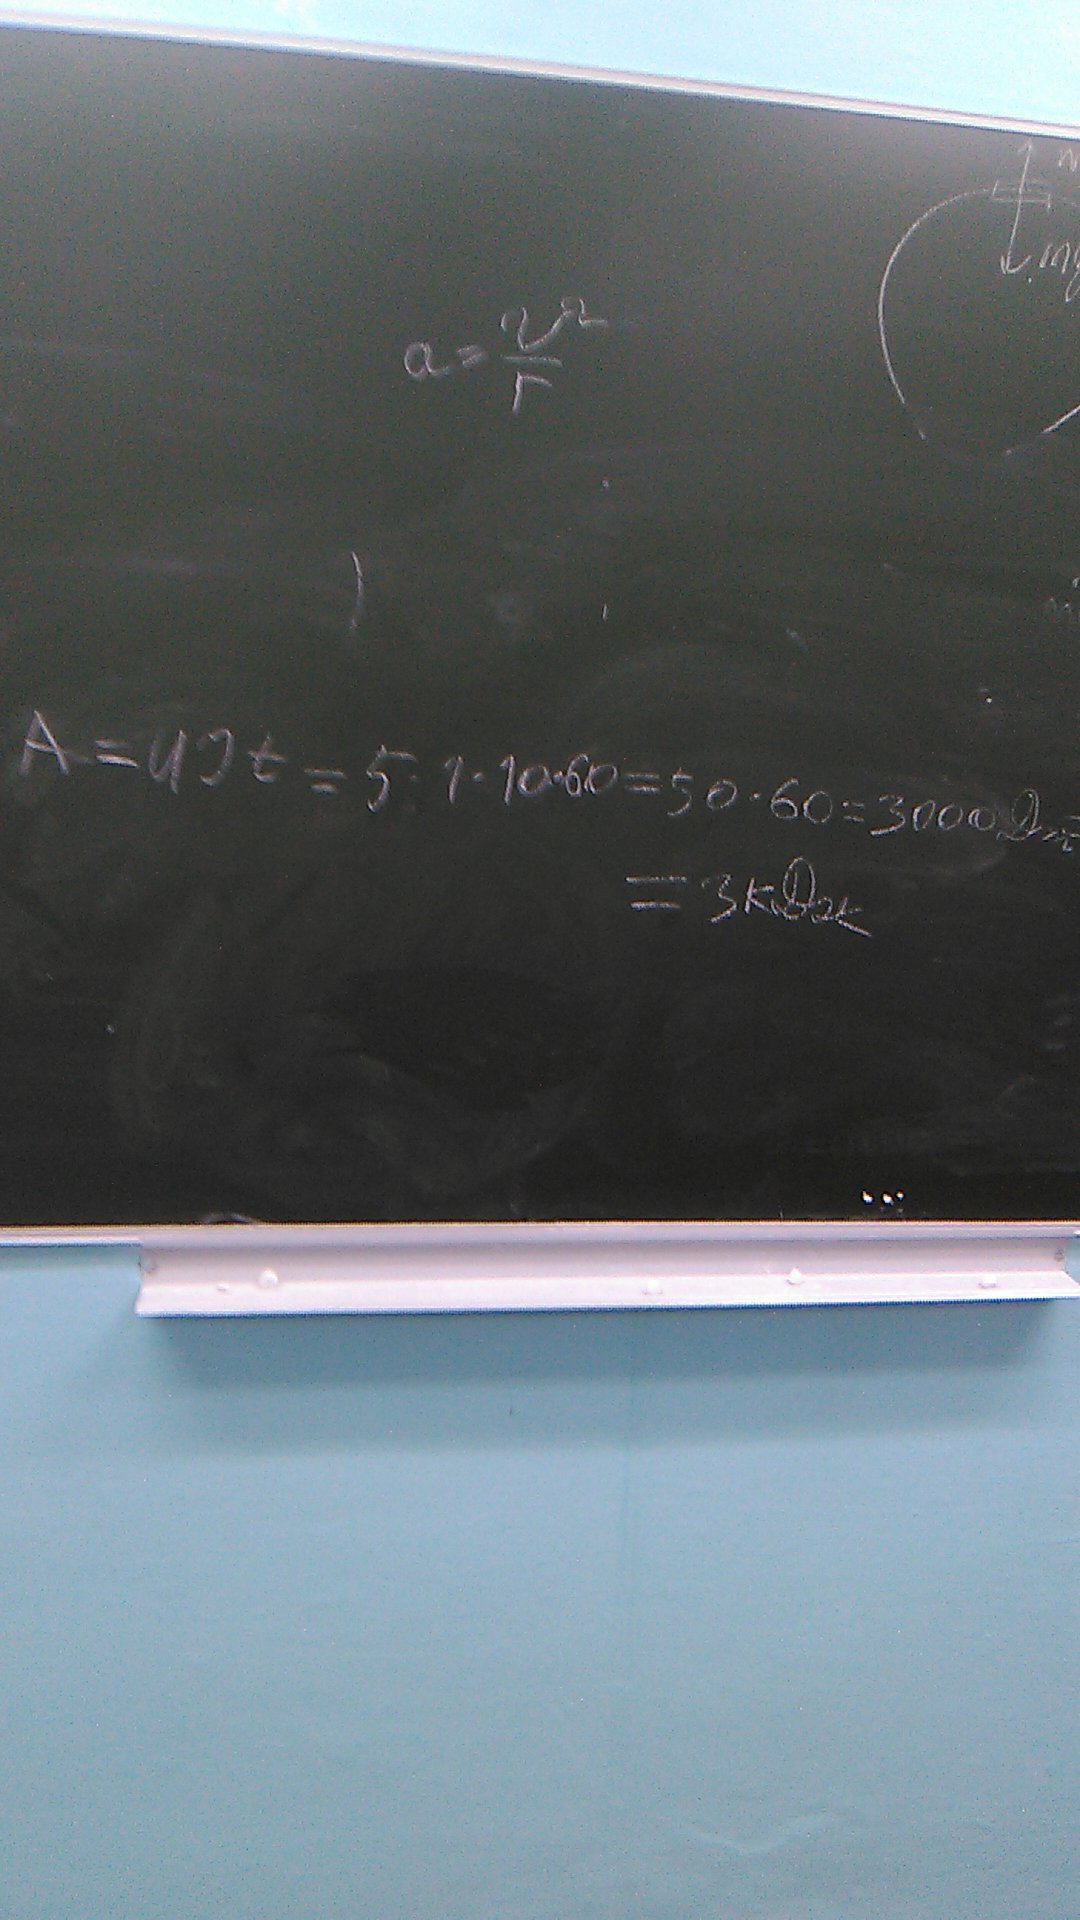 mg
a = v²/r
A = UIt = 5·1·10·60 = 50·60 = 3000 Дж
= 3кДж